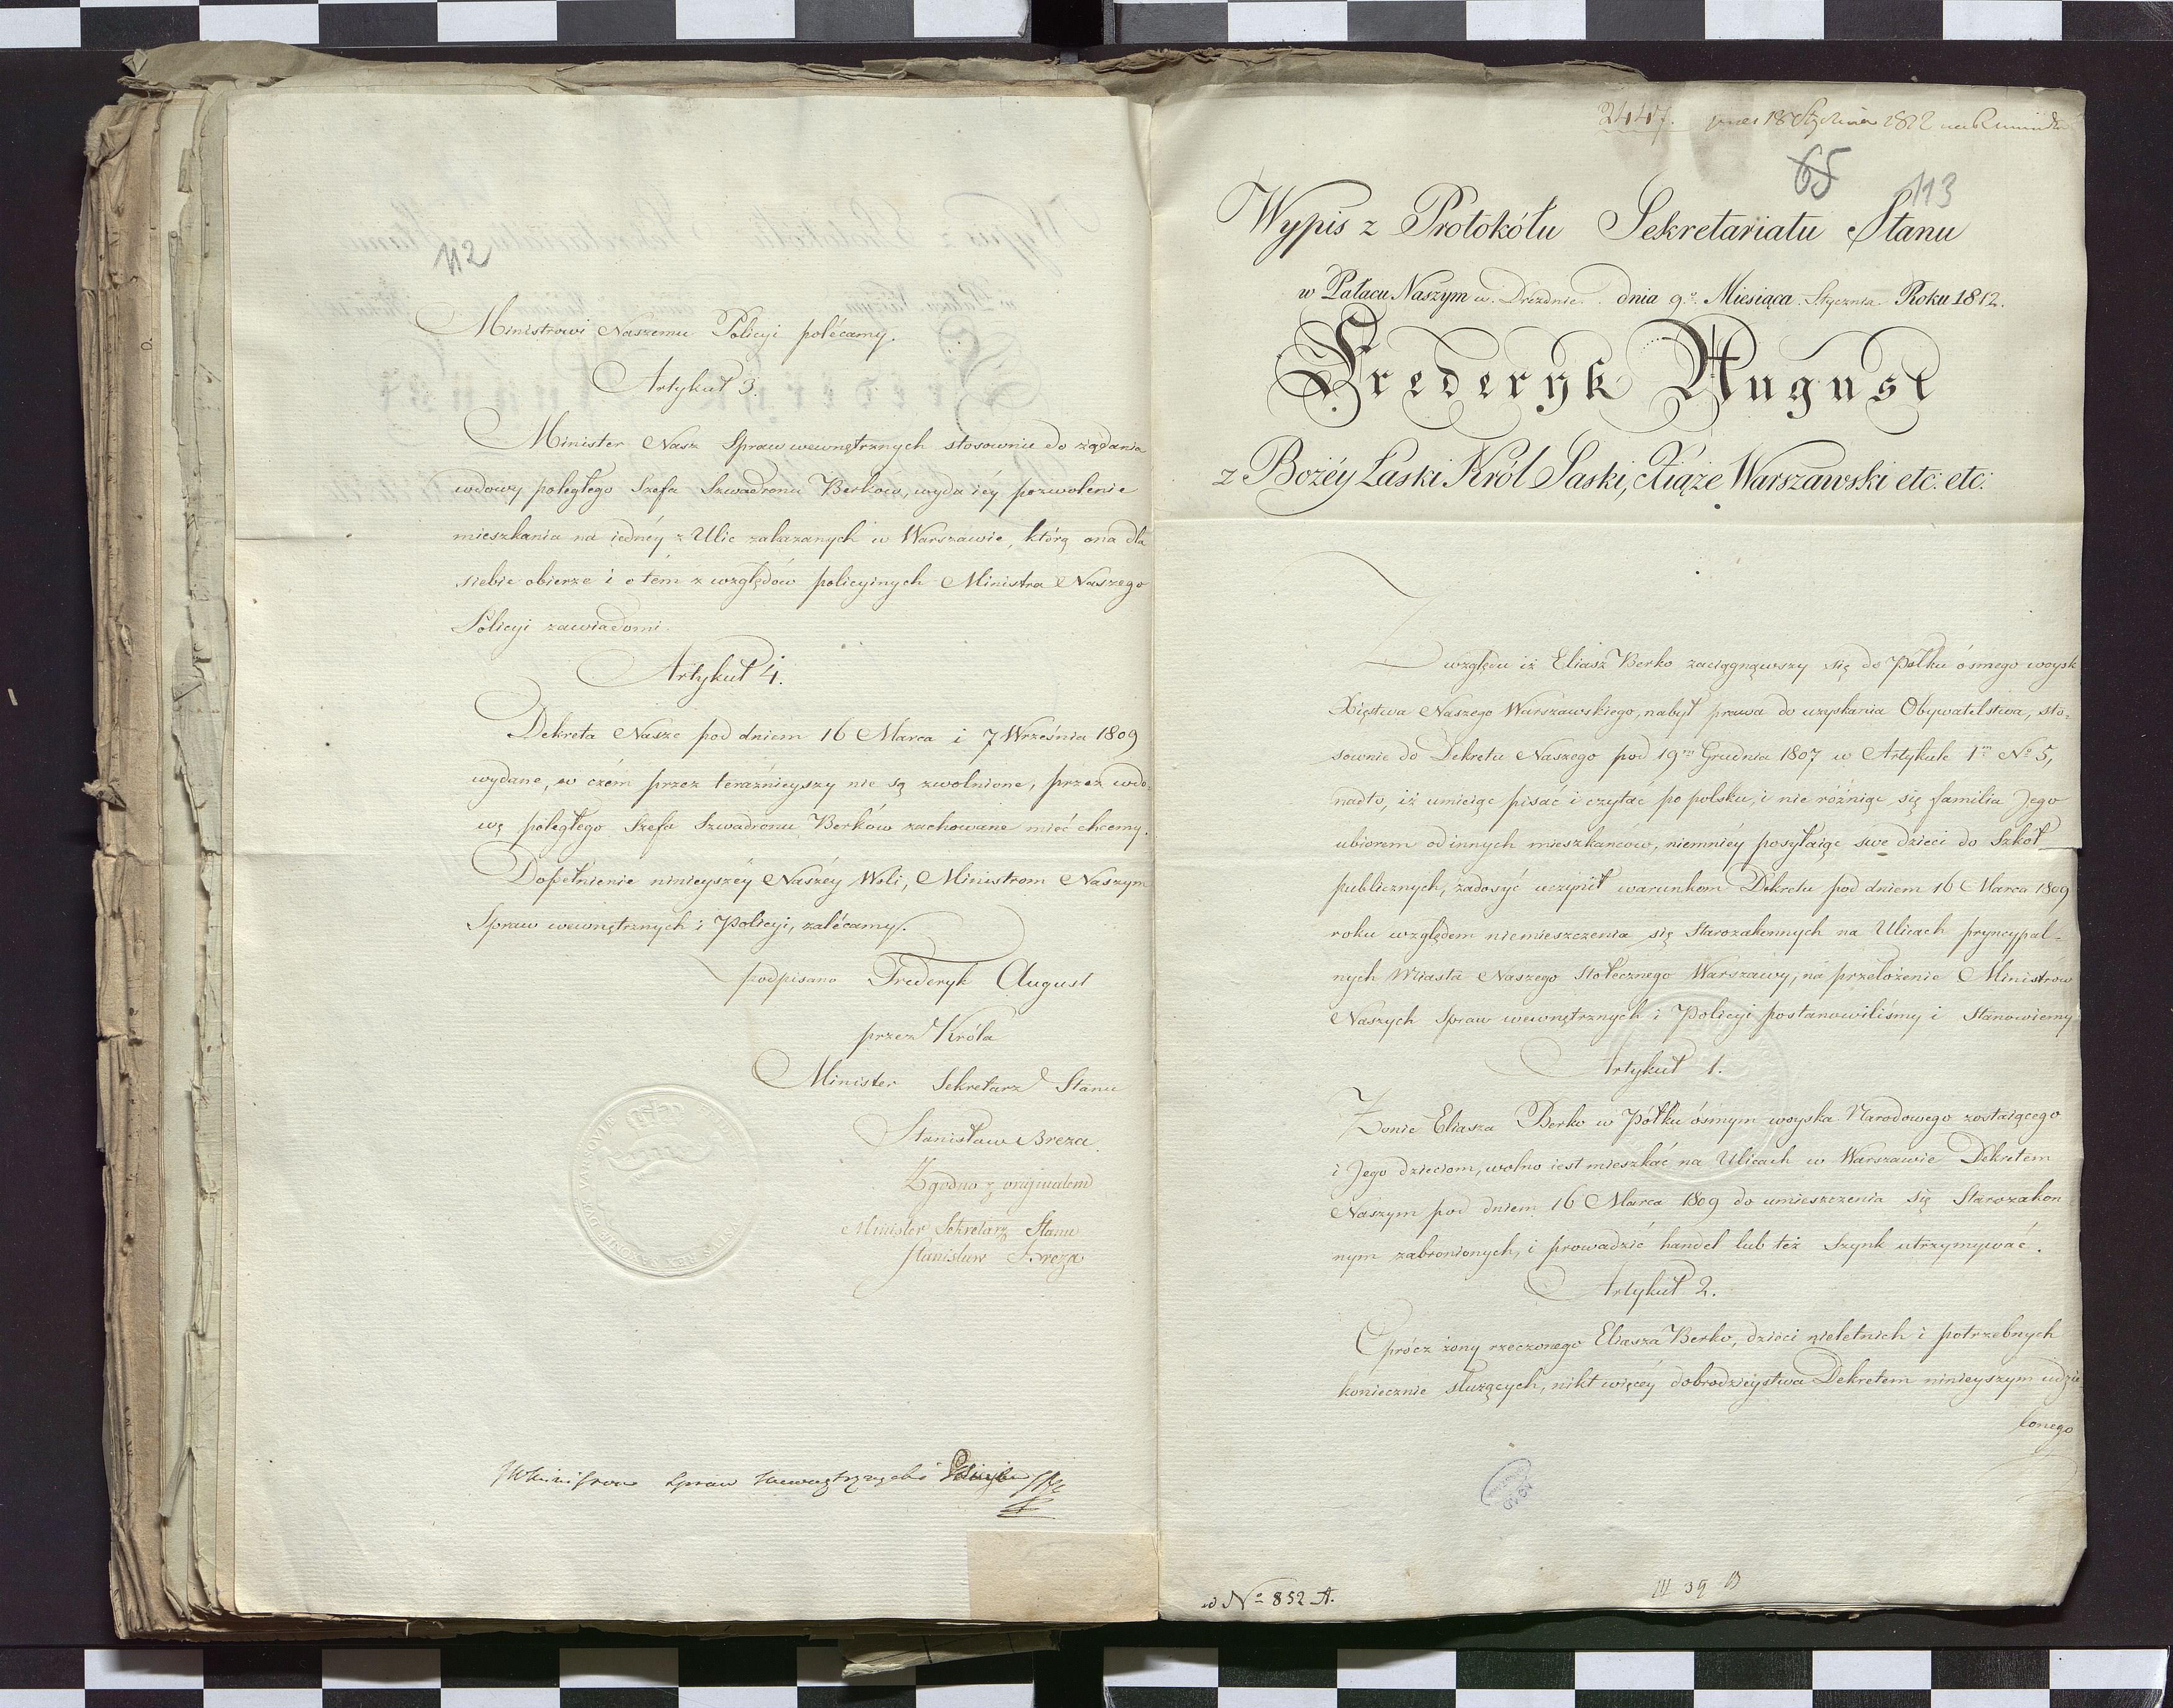 112
Ministrowi Naszemu Policyi polécamy.
Artykuł 3.
Minister Nasz Spraw wewnętrznych stosownie do żądania
wdowy poległego Szefa Szwadronu Berków, wyda iéy pozwolenie
mieszkania na iednéy z Ulic zakazanych w Warszawie, którą ona dla
siebie obierze i o tém z względów policyinych Ministra Naszego
Policyi zawiadomi.
Artykuł 4.
Dekreta Nasze pod dniem 16 Marca i 7 Września 1809
wydane, w czém przez teraźnieyszy nie są zwolnione, przez wdo-
wę poległego Szefa Szwadronu Berków zachowane mieć chcemy.
Dopełnienie ninieyszéy Naszéy Woli, Ministrom Naszym
Spraw wewnętrznych i Policyi, zalécamy.
podpisano Frederyk August
przez Króla
Minister Sekretarz Stanu
Stanisław Breza.
Zgodno z originałem
Minister Sekretarz Stanu
Stanisław Breza
Spraw Policyi
2447. 18 Stycznia 1812
65 113
Wypis z Protokółu Sekretariatu Stanu
w Pałacu Naszym w Dreźdnie dnia 9º Miesiąca Stycznia Roku 1812.
Frederyk August
z Bożéy Łaski Król Saski, Xiąże Warszawski etc: etc:
Z względu iż Eliasz Berko zaciągnąwszy się do Półku ósmego woysk
Xięstwa Naszego Warszawskiego, nabył prawa do uzyskania Obywatelstwa, sto-
sownie do Dekretu Naszego pod 19m Grudnia 1807 w Artykule 1m No 5,
nadto, iż umieiąc pisać i czytać po polsku, i nie różniąc się familia Jego
ubiorem od innych mieszkańców, niemniéy posyłaiąc swe dzieci do Szkół
publicznych, zadosyć uczynił warunkom Dekretu pod dniem 16 Marca 1809
roku względem niemieszczenia się Starozakonnych na Ulicach pryncypal-
nych Miasta Naszego Stołecznego Warszawy, na przełożenie Ministrów
Naszych Spraw wewnętrznych i Policyi postanowiliśmy i Stanowiemy
Artykuł 1.
Żonie Eliasza Berko w Półku ósmym woyska Narodowego zostaiącego
i Jego dzieciom, wolno iest mieszkać na Ulicach w Warszawie Dekretem
Naszym pod dniem 16 Marca 1809 do umieszczenia się Starozakon
nym zabronionych, i prowadzić handel lub też Szynk utrzymywać.
Artykuł 2.
Oprócz żony rzeczonego Eliasza Berko, dzieci nieletnich i potrzebnych
koniecznie służących, nikt więcéy dobrodzieystwa Dekretem ninieyszym udzie
lonego
AGAD
w No 852 A.
III 39 B